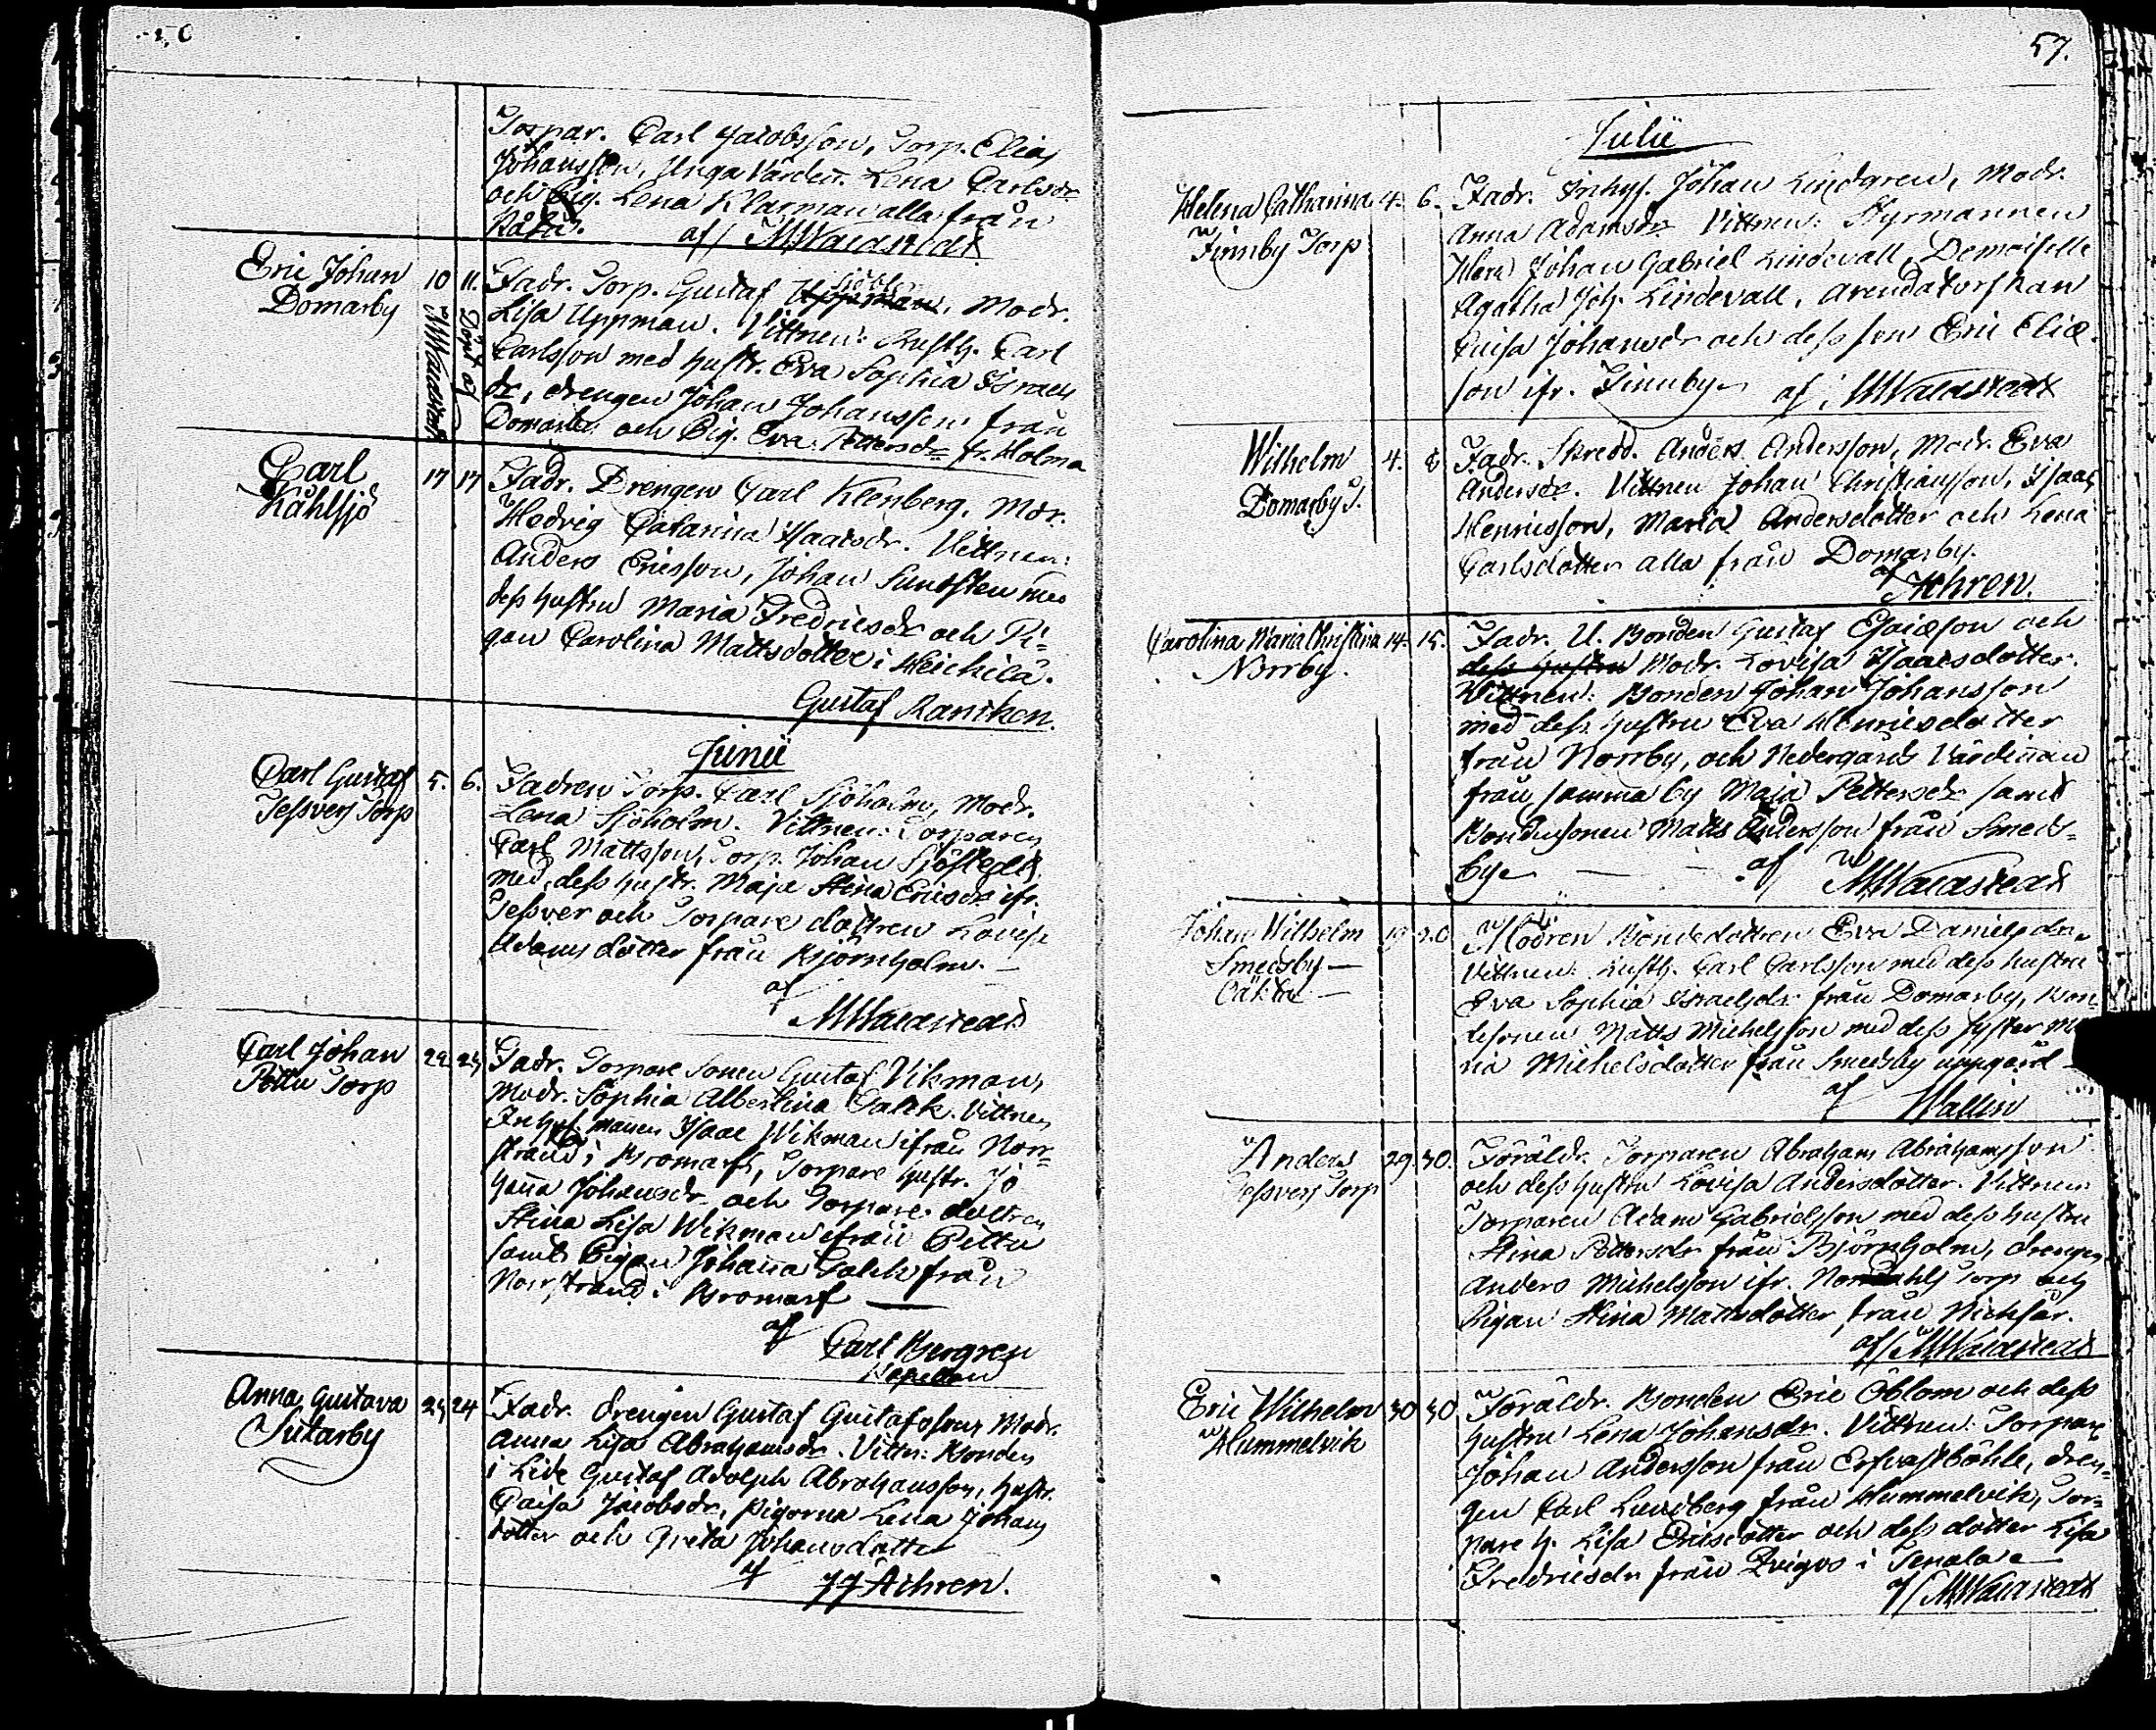 Torpar. Carl Jacobsson, Torp. Elias
Johansson, Unga Värdin. Lena Carlsdr
och Pig. Lena Klarman alla från
af/ MWaldstedt
Eric Johan 10 11. Fadr. Torp. Gustaf Uppman, Modr.
Domarby
Lisa Uppman. Vittnen: Rusth. Carl
Carlsson med hustr. Eva Sophia Israels
dr, drengen Johan Johansson från
Domarby och Pig. Eva Pettersdr fr. Holma
Döpt af
MWaldstedt
Carl 17 17 Fadr. Drengen Carl Klenberg, Mdr.
Kåhlsjö
Hedvig Catarina Isaacsdr. Vittnen:
Anders Ericsson, Johan Sundsten med
dess hustru Maria Fredricsdr och Pi-
gan Carolina Mattsdotter i
Gustaf Rancken.
Junii
Carl Gustaf 5. 6. Fadren Torp. Carl Sjöholm, Modr.
Jessvers Torp
Lena Sjöholm. Vittnen: Torparen
Carl Mattsson, Torp. Johan Sjöstedt
med dess hustr. Maja Stina Ericsdr ifr.
Jessver och Torpare dottren Lovisa
Adams dotter från Björnholm. –
af
MWaldstedt
Carl Johan 22 24 Fadr. Torpare Sonen Gustaf Vikman,
Pettu Torp
Modr. Sophia Albertina Galck. Vittnen
Inhys. mannen Isaac Wikman ifrån Norr-
strand i Bromarf, Torpare hustr. Jo
hanna Johansdr och Torpare dottren
Stina Lisa Wikman ifrån Pettu
samt Pigan Johanna Galck från
Norrstrand i Bromarf —
af
Carl Bergren
Kapellan
Anna Gustava 24 24 Fadr. drengen Gustaf Gustafsson, Modr.
Sutarby
Anna Lisa Abrahamsdr. Vittn: Bonden
i Lide Gustaf Adolph Abrahamsson, hustr.
Caisa Jacobsdr, pigorna Lena Johans
dotter och Greta Johansdotter
af JJ Åhren.
57.
Julii
Helena Catharina 4. 6. Fadr. Inhys. Johan Lindgren, Modr.
Finnby Torp
Anna Adamsdr Vittnen: Styrmannen
Herr Johan Gabriel Lindevall, Demoiselle
Agatha Joh. Lindevall, Arendatorskan
Caisa Johansdr och dess son Eric Elias
son ifr. Finnby af; MWaldstedt
Wilhelm 4. 8 Fadr. Skredd. Anders Andersson, Modr. Eva
Domarby T.
Andersdr. Vittnen Johan Christiansson, Isaac
Henricsson, Maria Andersdotter och Lena
Carlsdotter alla från Domarby.
af Åhren.
Carolina Maria Christina 14. 15. Fadr. U. Bonden Gustaf Esaiæson och
Norrby.
dess hustru Modr. Lovisa Isaacsdotter.
Vittnen: Bonden Johan Johansson
med dess hustru Eva Henricsdotter
från Norrby, och Nedergårds Värdinnan
från samma by Maja Pettersdr samt
Bondesonen Matts Andersson från Smeds-
by — af MWaldstedt
Johan Wilhelm 19 20 Modren Bondedottren Eva Danielsdr.
Smedsby —
Oäkta —
Vittnen: Rusth. Carl Carlsson med dess hustru
Eva Sophia Israelsdr från Domarby, Bon-
desonen Matts Michelsson med dess syster Ma
ria Michelsdotter från Smedsby uppgård –
af Wallin
Anders 29. 30. Föräldr. Torparen Abraham Abrahamsson
Jessvers Torp
och dess hustru Lovisa Andersdotter. Vittnen
Torparen Adam Gabrielsson med dess hustru
Stina Pettersdr från Björnholm, drengen
Anders Michelsson ifr. Torp och
Pigan Stina Mattsdotter från
af/ MWaldstedt
Eric Wilhelm 30 30 Föräldr. Bonden Eric Öblom och dess
Hummelvik
hustru Lena Johansdr. Vittnen: Torpare
Johan Andersson från Erfvastböhle, dren-
gen Carl Lundberg från Hummelvik, Tor-
pare h. Lisa Ericsdotter och dess dotter Lisa
Fredricsdr från i Tenala —
af/ MWaldstedt